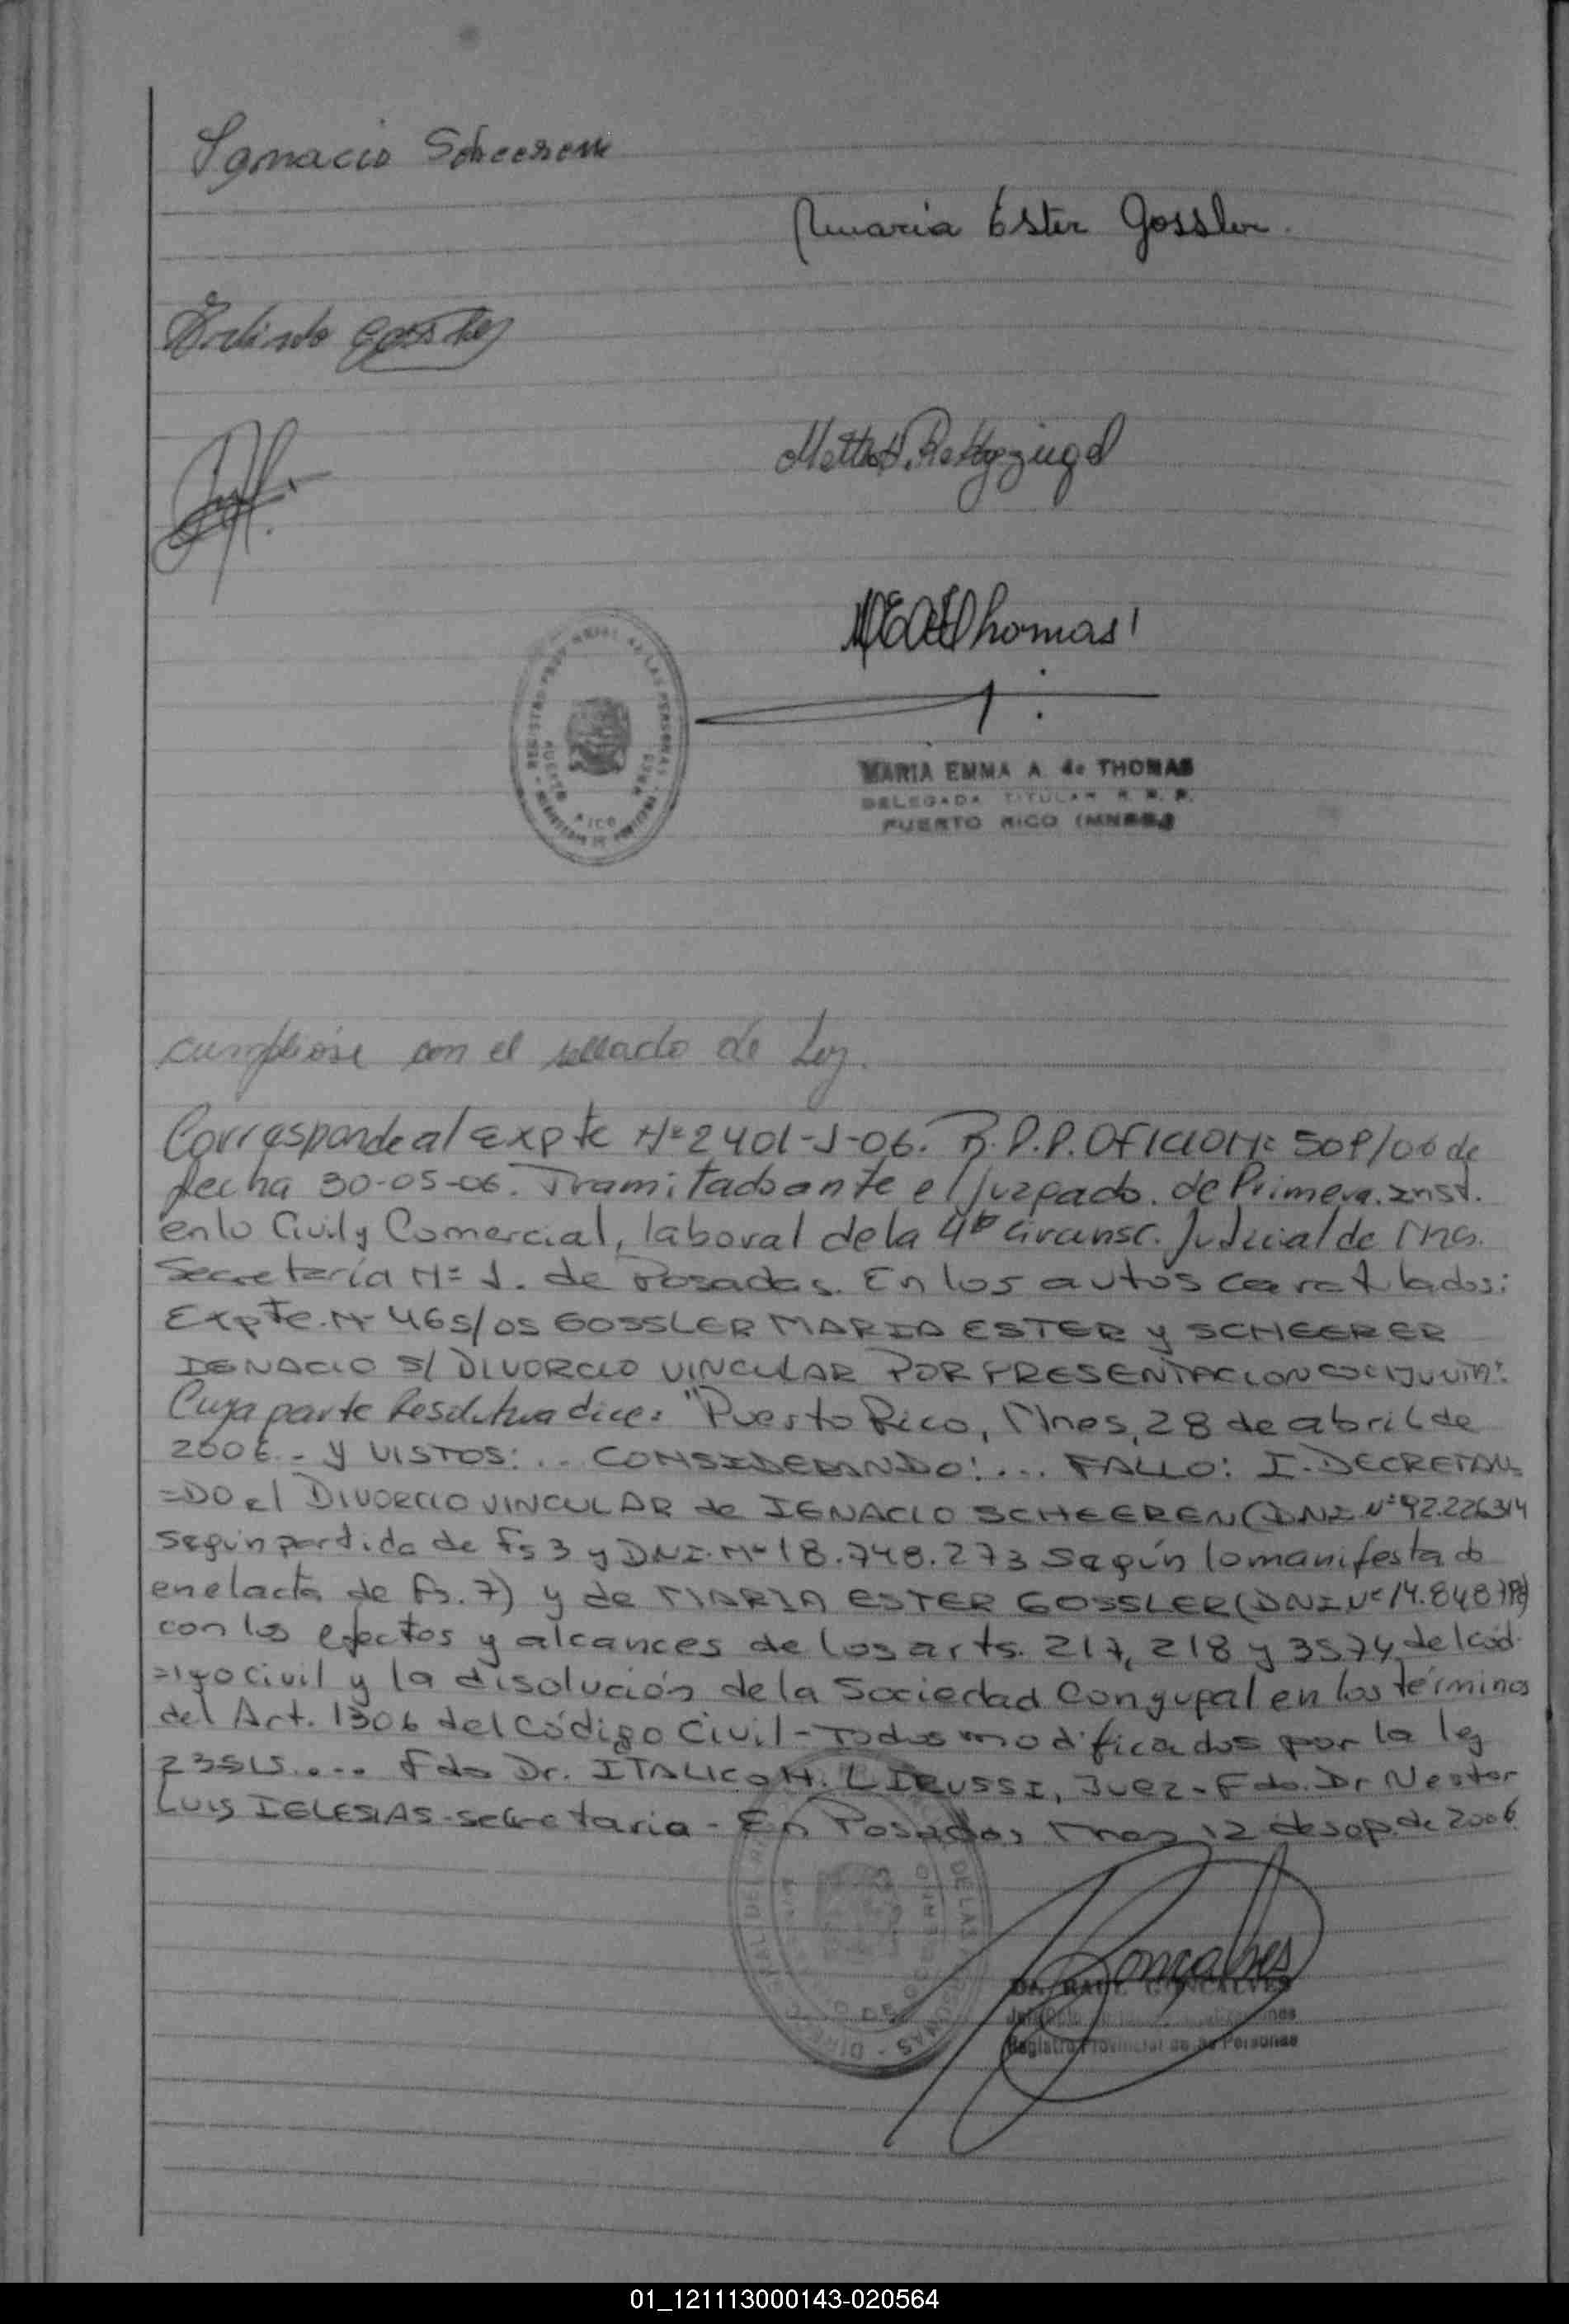 Ignacio Scheeren
Maria Ester Gossler.
MEAThomas
REGISTRO PROVINCIAL DE LAS PERSONAS
PUERTO RICO
MARIA EMMA A. de THOMAS
DELEGADA TITULAR R. P. P.
PUERTO RICO (MNES)
cumplióse con el sellado de Ley.
Corresponde al Expte Nº 2401-J-06. R.P.P. OFICIO Nº 509/06 de
fecha 30-05-06. Tramitado ante el Juzgado. de Primera. Inst.
en lo Civil y Comercial, laboral de la 4ta Circunsc. Judicial de Mnes.
Secretaría Nº 1. de Posadas. En los autos caratulados:
Expte. Nº 465/05 GOSSLER MARIA ESTER y SCHEERER
IGNACIO S/ DIVORCIO VINCULAR POR PRESENTACION CONJUNTA".
Cuya parte Resolutiva dice: "Puerto Rico, Mnes, 28 de abril de
2006.- Y VISTOS:... CONSIDERANDO:... FALLO: I. DECRETAN
=DO el DIVORCIO VINCULAR de IGNACIO SCHEEREN (DNI. Nº 92.226.314
según partida de Fs 3 y DNI. Nº 18.748.273 Según lo manifestado
en el acta de fs. 7) y de MARIA ESTER GOSSLER (DNI Nº 14.848.798)
con los efectos y alcances de los arts. 217, 218 y 3574 del cód-
=igo civil y la disolución de la Sociedad Conyugal en los términos
del Art. 1306 del Código Civil - Todos modificados por la ley
23515.... Fdo Dr. ITALICO H. LIRUSSI, Juez - Fdo. Dr Nestor
LUIS IGLESIAS - secretaria - En Posadas, Mnes 12 de sep. de 2006.
Gonçalves
DR. RAUL GONCALVES
Registro Provincial de las Personas
01_121113000143-020564